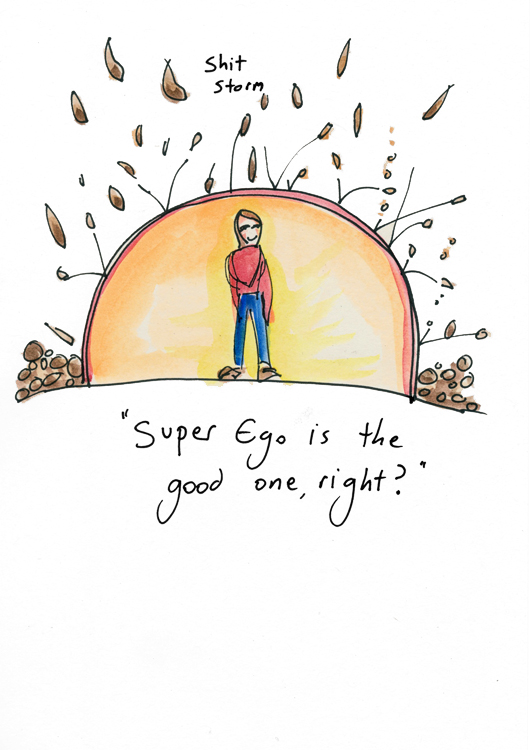 Shit
Storm
"Super Ego is the
good one, right?"